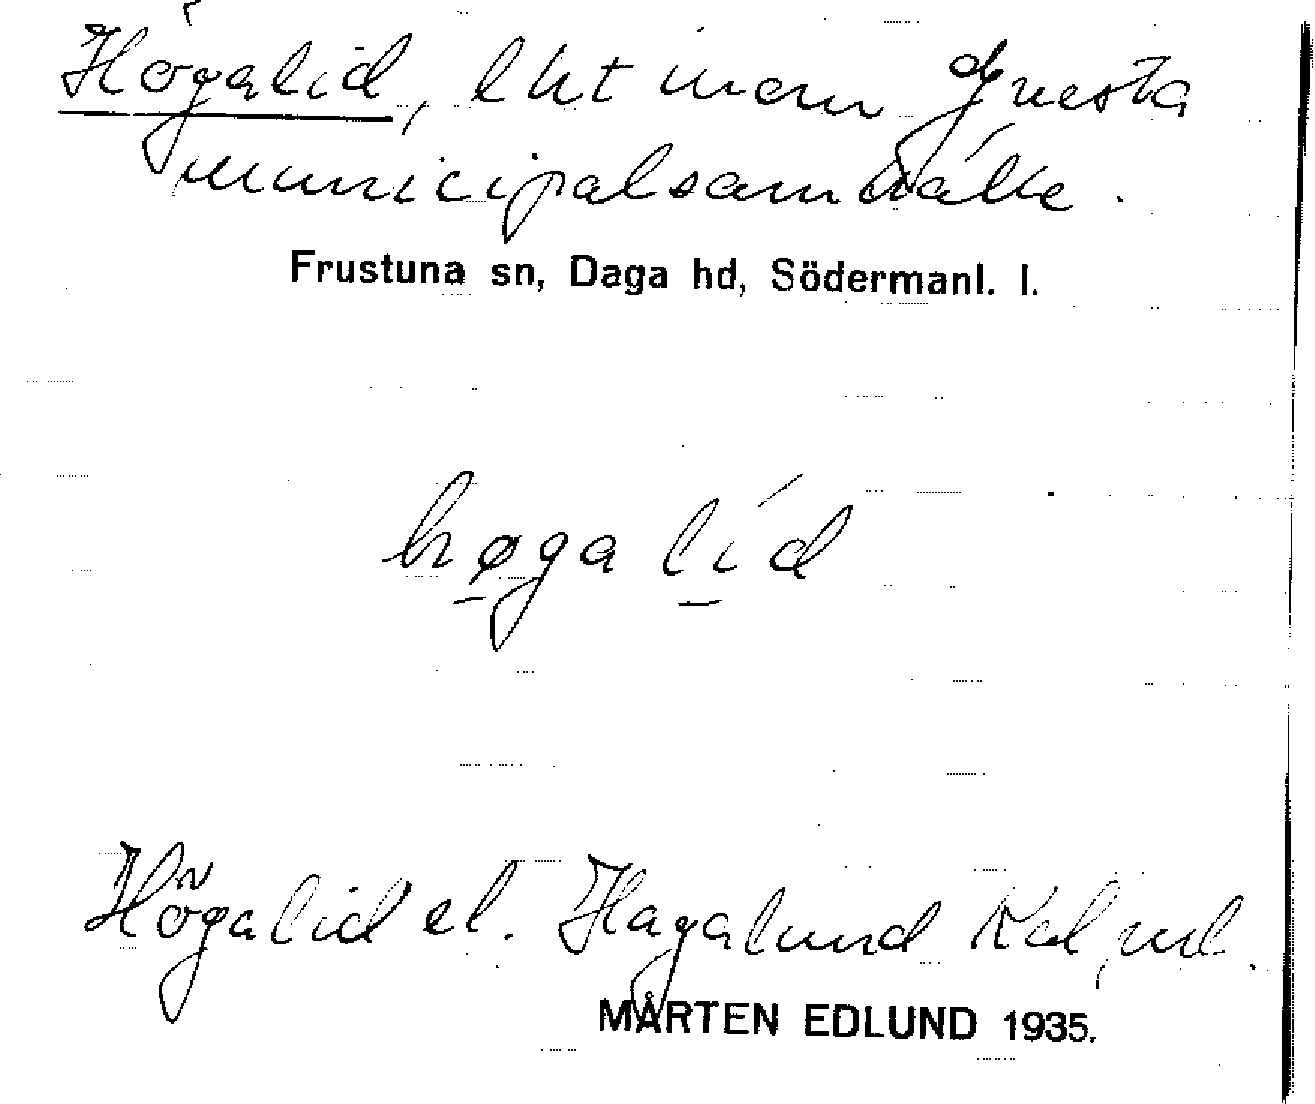 Högalid, lht inom Gnesta
municipalsamhälle.
Frustuna sn, Daga hd, Södermanl. l.
høga líd
Högalid el. Hagalund
MÅRTEN EDLUND 1935.